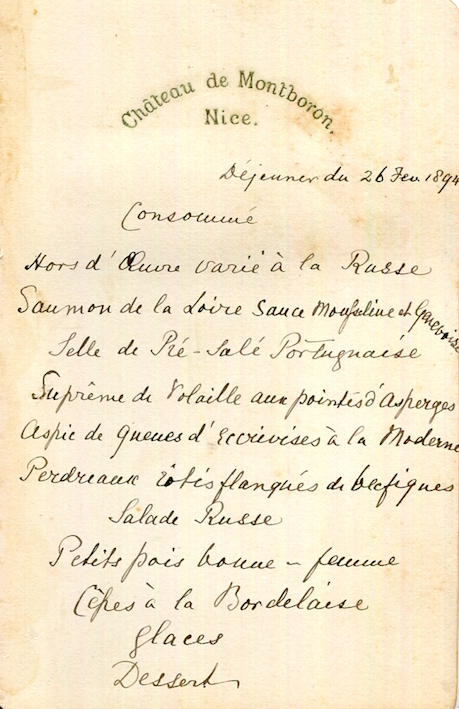 Château de Montboron.
Nice.
Déjeuner du 26 Fev 1894
Consommé
Hors d'Œuvre varié à la Russe
Saumon de la Loire Sauce Mousseline et Genevoise
Selle de Pré-Salé Portugaise
Suprême de Volaille aux pointes d'Asperges
Aspic de Queues d'Ecrevises à la Moderne
Perdreaux rôtis flanqués de becfigues
Salade Russe
Petits pois bonne-femme
Cèpes à la Bordelaise
glaces
Dessert